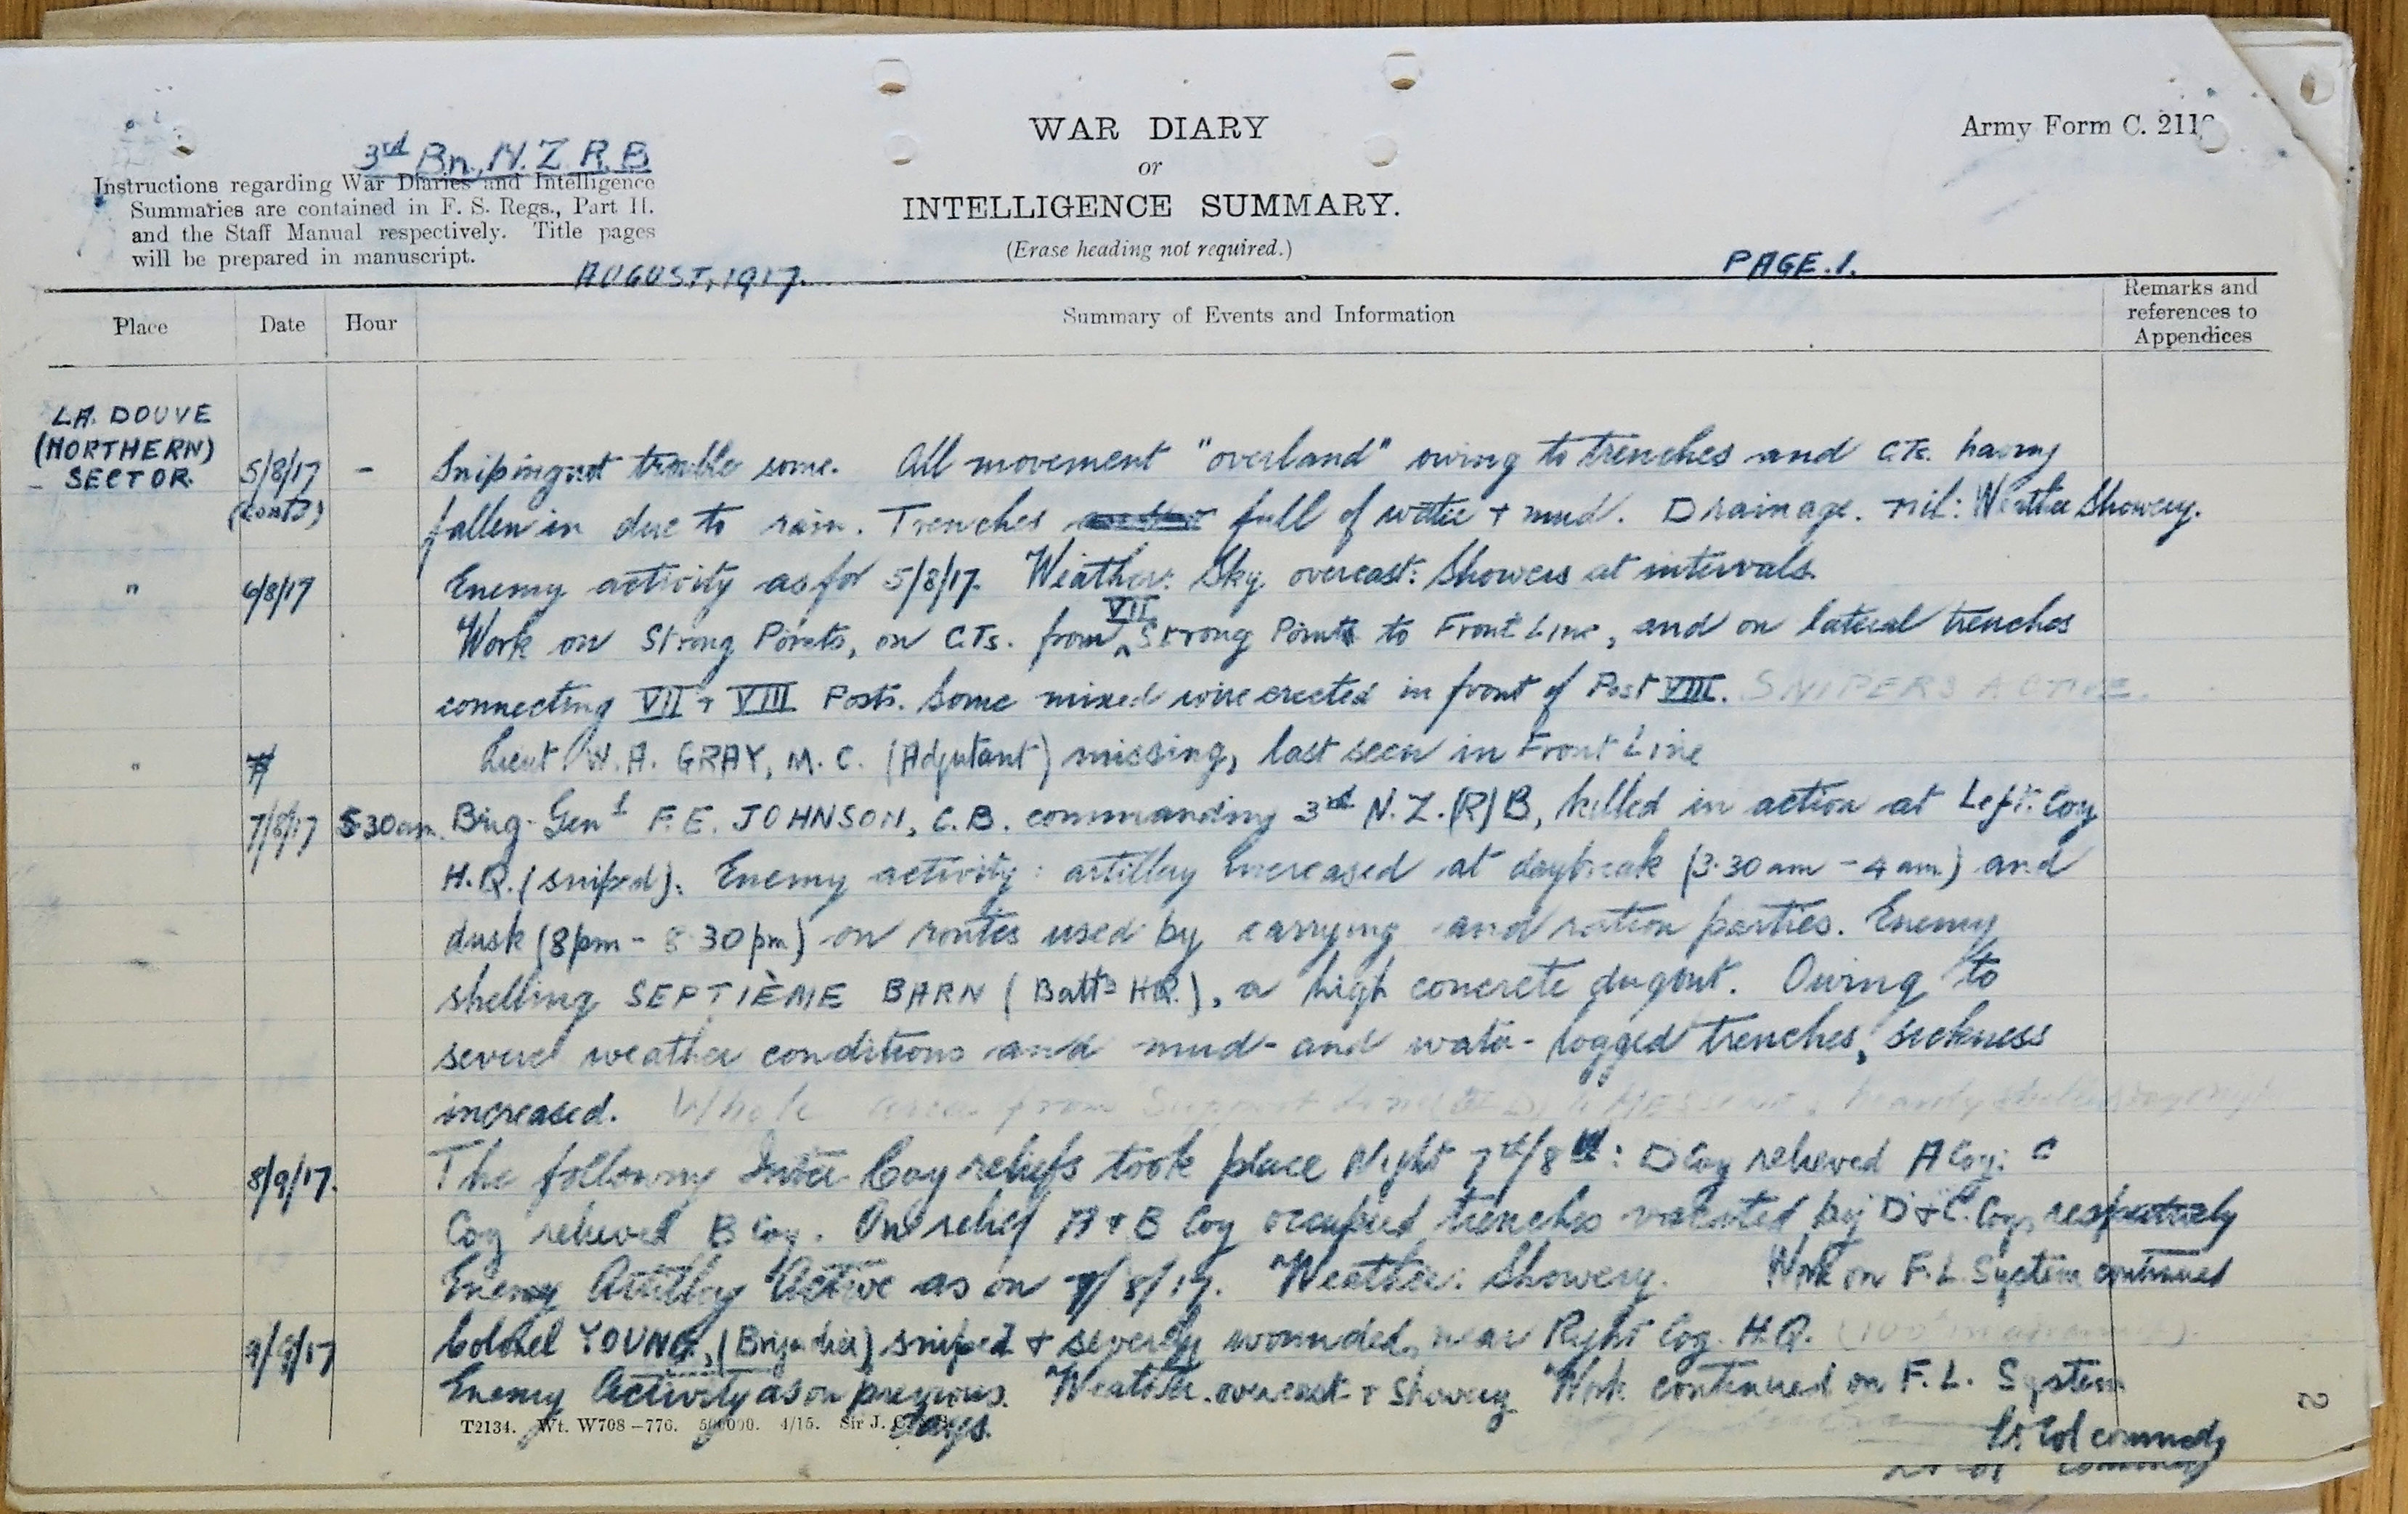 3rd Bn., N.Z.R.B
Instructions regarding War Diaries and Intelligence
Summaries are contained in F. S. Regs., Part II.
and the Staff Manual respectively. Title pages
will be prepared in manuscript.
WAR DIARY
or
INTELLIGENCE SUMMARY.
(Erase heading not required.)
Army Form C. 211
AUGUST, 1917.
PAGE. 1.
Place Date Hour Summary of Events and Information Remarks and references to Appendices
LA. DOUVE
(NORTHERN)
SECTOR.
5/8/17 - Sniping not trouble some. All movement "overland" owing to trenches and C.Ts. having
(Contd) fallen in due to rain. Trenches full of water + mud. Drainage. nil: Weather Showery.
" 6/8/17 Enemy activity as for 5/8/17. Weather: Sky overcast: Showers at intervals.
Work on Strong Points, on C.Ts. from VII Strong Point to Front Line, and on lateral trenches
connecting VII + VIII Posts. Some mixed wire erected in front of Post VIII. SNIPERS ACTIVE.
" Lieut. W.A. GRAY, M.C. (Adjutant) missing, last seen in Front Line
7/8/17 5.30am. Brig-Genl F.E. JOHNSON, C.B. commanding 3rd N.Z.(R)B, killed in action at Left. Coy
H.Q. (sniped). Enemy activity: artillery increased at daybreak (3.30am - 4am) and
dusk (8pm - 8.30pm) on routes used by carrying and ration parties. Enemy
shelling SEPTIÈME BARN (Battn HQ.), a high concrete dugout. Owing to
severe weather conditions and mud- and water-logged trenches, sickness
increased. Whole area from Support Line MESSINES heavily shelled
8/9/17. The following Inter Coy reliefs took place Night 7th/8th: D Coy relieved A Coy: C
Coy relieved B Coy. On relief A + B Coy occupied trenches vacated by D + C. Coys respectively
Enemy Artillery Active as on 7/8/17. Weather: Showery. Work on F.L. System continued
9/9/17 Colonel YOUNG, (Brigadier) sniped + severely wounded, near Right Coy. H.Q.
Enemy Activity as on previous Weather. overcast + Showery Work continued on F.L. System
days.
T2134. Wt. W708-776. 500000. 4/15. Sir J.
Lt Col commdg
2